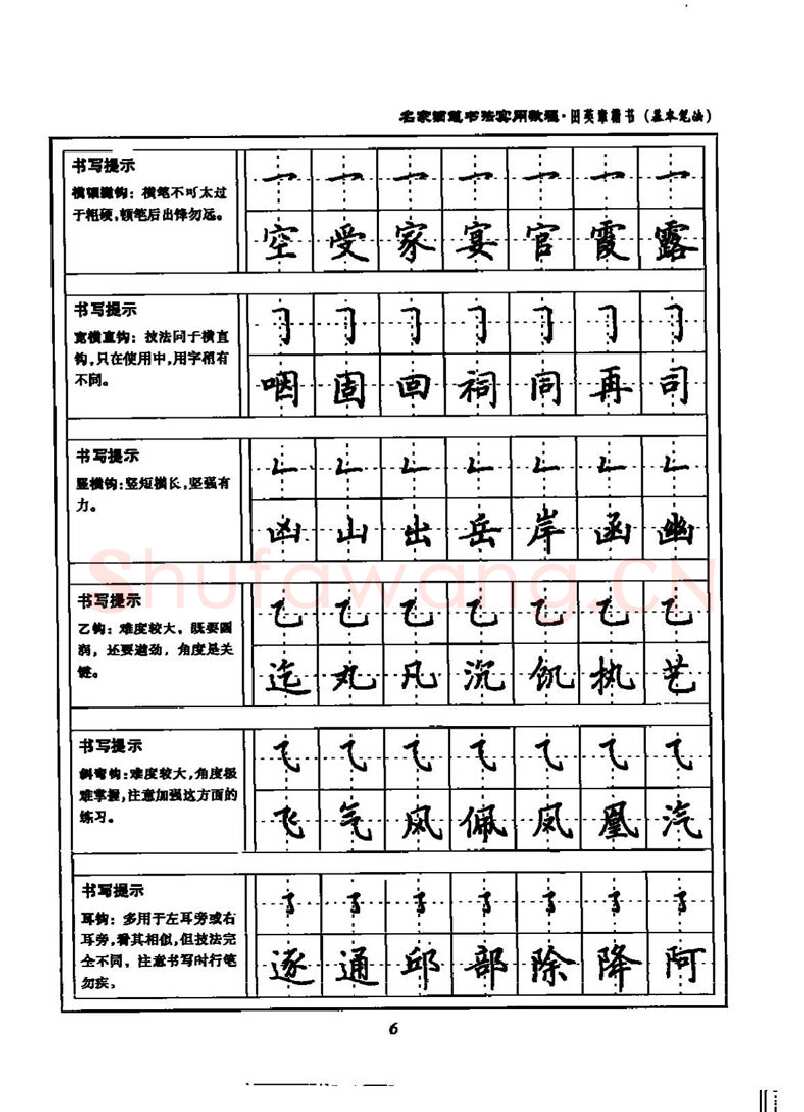 名家铺道书法实用教程·田英章楷书(基本笔法)
书写提示
横顿撇钩：横笔不可太过
于粗硬,顿笔后出锋勿远。
空受家宴官霞露
书写提示
宽横直钩：技法同于横直
钩,只在使用中,用字稍有
不同。
咽固回祠同再司
书写提示
竖横钩:竖短横长,坚强有
力。
凶山出岳岸函幽
Shufawang.CN
书写提示
乙钩：难度较大。既要圆
润，还要遒劲，角度是关
键。
乙乙乙乙乙乙乙
迄丸凡沉饥执艺
书写提示
斜弯钩:难度较大,角度极
难掌握,注意加强这方面的
练习。
飞气风佩凤凰汽
书写提示
耳钩：多用于左耳旁或右
耳旁,看其相似,但技法完
全不同，注意书写时行笔
勿疾。
逐通邱部除降阿
6